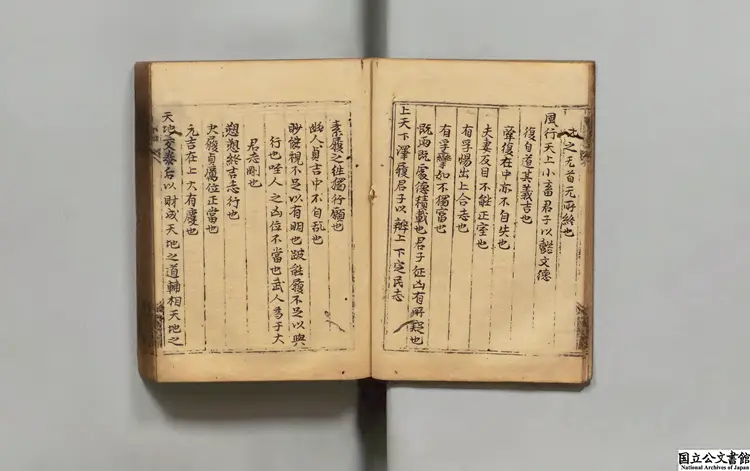 比之无首无所終也
風行天上小畜君子以懿文德
復自道其義吉也
牽復在中亦不自失也
夫妻反目不能正室也
有孚惕出上合志也
有孚攣如不獨富也
既雨既處德積載也君子征凶有所疑也
上天下澤履君子以辨上下定民志
素履之往獨行願也
幽人貞吉中不自乱也
眇能視不足以有明也跛能履不足以與
行也咥人之凶位不當也武人爲于大
君志剛也
愬愬終吉志行也
夬履貞厲位正當也
元吉在上大有慶也
天地交泰后以財成天地之道輔相天地之
国立公文書館
National Archives of Japan